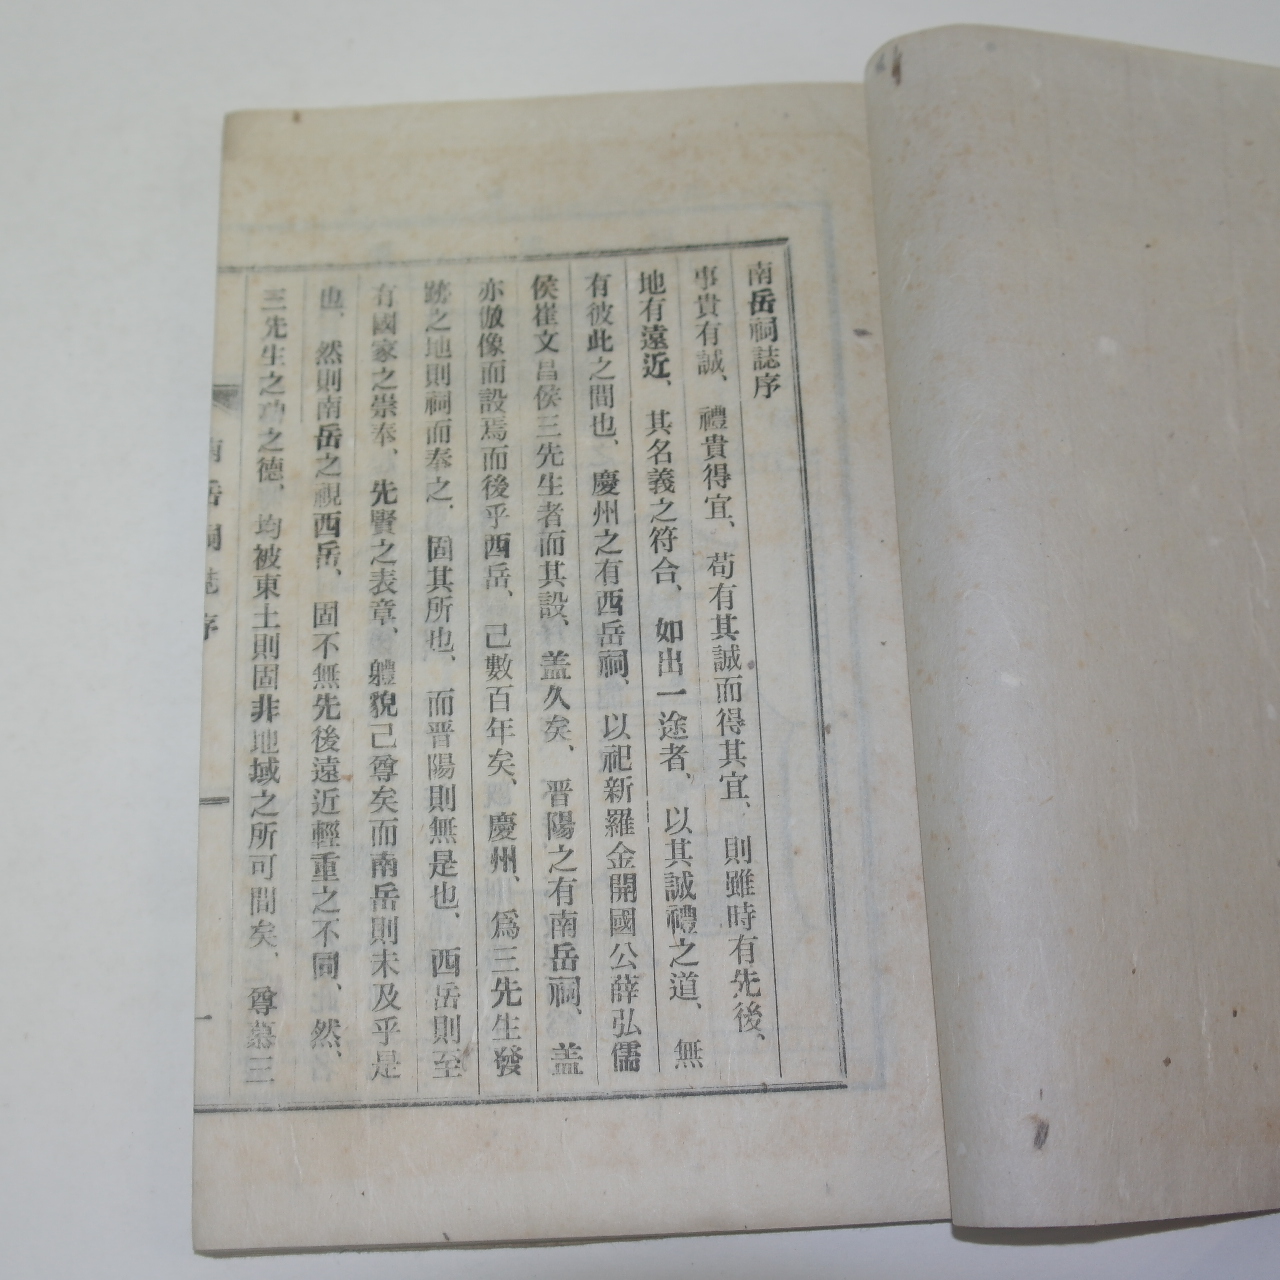 南岳祠誌序
事貴有誠、禮貴得宜、苟有其誠而得其宜、則雖時有先後、
地有遠近、其名義之符合、如出一途者、以其誠禮之道、無
有彼此之間也、慶州之有西岳祠、以祀新羅金開國公薛弘儒
侯崔文昌侯三先生者而其設、盖久矣、晋陽之有南岳祠、盖
亦倣像而設焉而後乎西岳、己數百年矣、慶州、爲三先生發
跡之地則祠而奉之、固其所也、而晋陽則無是也、西岳則至
有國家之崇奉、先賢之表章、軆貌己尊矣而南岳則未及乎是
也、然則南岳之視西岳、固不無先後遠近輕重之不同、然、
三先生之功之德、均被東土則固非地域之所可間矣、尊慕三
南岳祠誌序
一